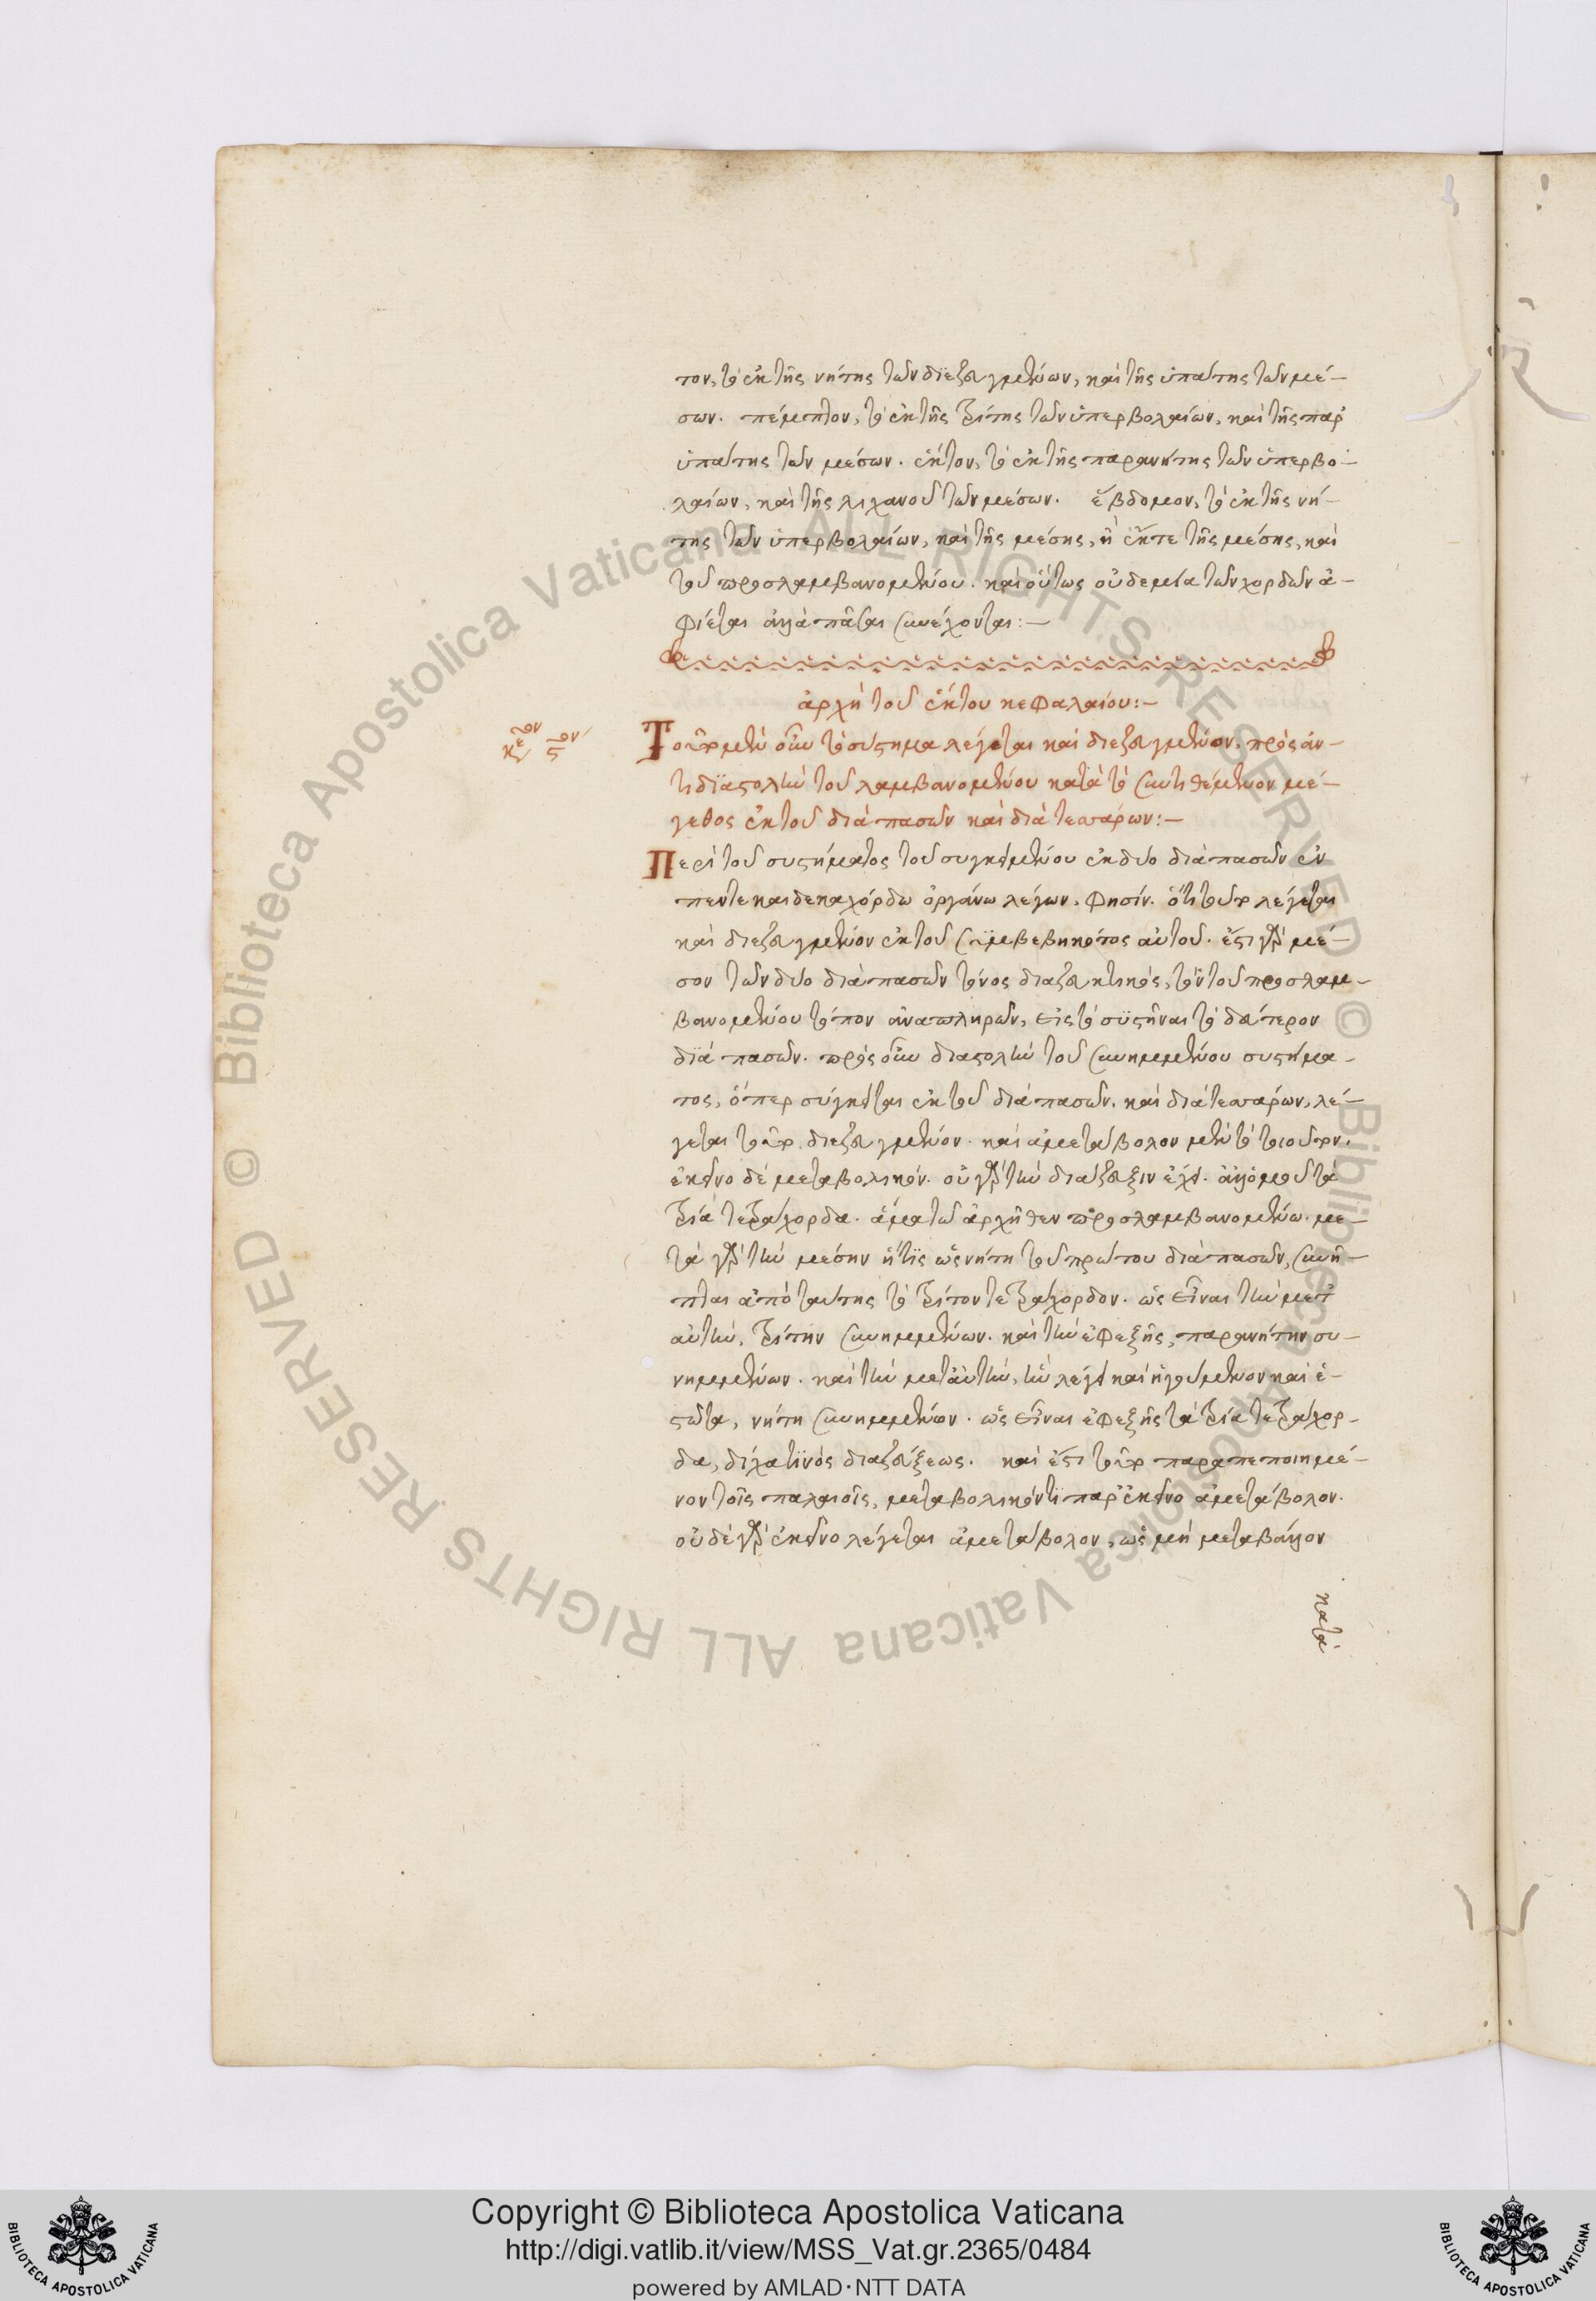 τον, τὸ ἐκ τῆς νήτης τῶν διεζευγμένων, καὶ τῆς ὑπάτης τῶν μέ-
σων. πέμπτον, τὸ ἐκ τῆς τρίτης τῶν ὑπερβολαίων, καὶ τῆς παρ
ὑπάτης τῶν μέσων. ἕκτον, τὸ ἐκ τῆς παρανήτης τῶν ὑπερβο-
λαίων, καὶ τῆς λιχανοῦ τῶν μέσων. ἕβδομον, τὸ ἐκ τῆς νή-
της τῶν ὑπερβολαίων, καὶ τῆς μέσης, ἢ ἔκτε τῆς μέσης, καὶ
τοῦ προσλαμβανομένου. καὶ οὕτως οὐδεμία τῶν χορδῶν ἀ-
φίεται ἀλλὰ πᾶσαι συνέχονται:—
ἀρχὴ τοῦ ἕκτου κεφαλαίου:—
κε ον ς ον
Τοῦτο μὲν οὖν τὸ σύστημα λέγεται καὶ διεζευγμένον. πρὸς ἀν-
τιδιαστολὴν τοῦ λαμβανομένου κατὰ τὸ συντιθέμενον μέ-
γεθος ἐκ τοῦ διὰ πασῶν καὶ διὰ τεσσάρων:—
Περὶ τοῦ συστήματος τοῦ συγκειμένου ἐκ δύο διὰ πασῶν ἐν
πεντεκαιδεκαχόρδω ὀργάνω λέγων. φησίν. ὅτι τοῦτο λέγεται
καὶ διεζευγμένον ἐκ τοῦ συμβεβηκότος αὐτοῦ. ἔστι γὰρ μέ-
σον τῶν δύο διὰ πασῶν τόνος διαζευκτικὸς, τὸν τοῦ προσλαμ-
βανομένου τόπον ἀναπληρῶν, εἰς τὸ συστῆναι τὸ δεύτερον
διὰ πασῶν. πρὸς οὖν διαστολὴν τοῦ συνημμένου συστήμα-
τος, ὅπερ σύγκειται ἐκ τοῦ διὰ πασῶν. καὶ διὰ τεσσάρων, λέ-
γεται τοῦτο διεζευγμένον. καὶ ἀμετάβολον μὲν τὸ τοιοῦτον.
ἐκεῖνο δὲ μεταβολικόν. οὐ γὰρ τὴν διάζευξιν ἔχει. ἀλλ' ὁμοῦ τὰ
τρία τετράχορδα. ἅμα τῶ ἀρχῆθεν προσλαμβανομένω. με-
τὰ γὰρ τὴν μέσην ἥτις ὡς νήτη τοῦ πρώτου διὰ πασῶν, συνῆ-
πται ἀπὸ ταύτης τὸ τρίτον τετράχορδον. ὡς εἶναι τὴν μετ'
αὐτὴν, τρίτην συνημμένων. καὶ τὴν ἐφεξῆς, παρανήτην συ-
νημμένων. καὶ τὴν μετ' αὐτὴν, ἣν λέγει καὶ ἡγουμένον καὶ ἑ-
στῶτα, νήτη συνημμένων. ὡς εἶναι ἐφεξῆς τὰ τρία τετράχορ-
δα, δίχα τινὸς διαζεύξεως. καὶ ἔστι τοῦτο παραπεποιημέ-
νον τοῖς παλαιοῖς, μεταβολικόν τι παρ' ἐκεῖνο ἀμετάβολον.
οὐδὲ γὰρ ἐκεῖνο λέγεται ἀμετάβολον, ὡς μὴ μεταβάλλον
κατὰ
Copyright © Biblioteca Apostolica Vaticana
http://digi.vatlib.it/view/MSS_Vat.gr.2365/0484
powered by AMLAD·NTT DATA
BIBLIOTECA APOSTOLICA VATICANA
BIBLIOTECA APOSTOLICA VATICANA
© Biblioteca Apostolica Vaticana ALL RIGHTS RESERVED © Biblioteca Apostolica Vaticana ALL RIGHTS RESERVED